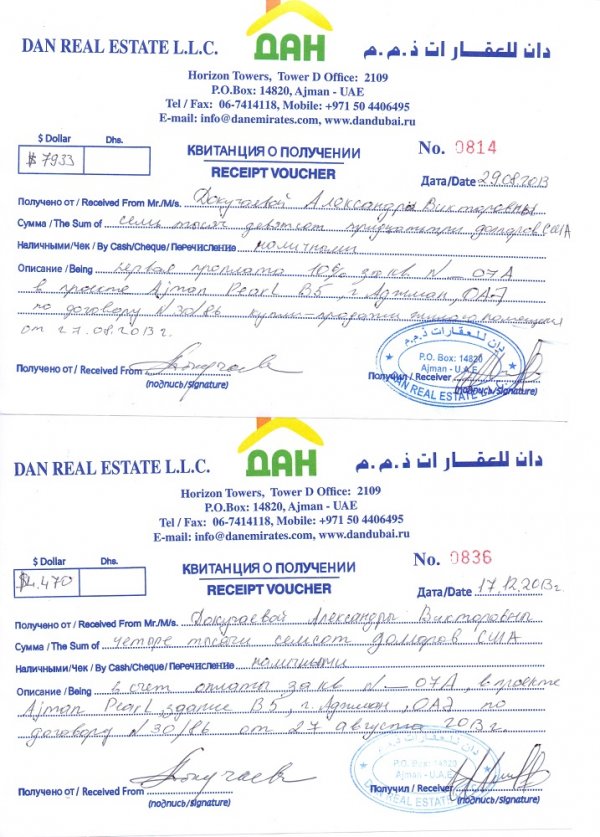 DAN REAL ESTATE L.L.C. ДАН دان للعقارات ذ.م.م
Horizon Towers, Tower D Office: 2109
P.O.Box: 14820, Ajman - UAE
Tel / Fax: 06-7414118, Mobile: +971 50 4406495
E-mail: info@danemirates.com, www.dandubai.ru
$ Dollar Dhs.
$ 7933
КВИТАНЦИЯ О ПОЛУЧЕНИИ No. 0814
RECEIPT VOUCHER Дата/Date 29.08.2013
Получено от / Received From Mr./M/s. Докучаевой Александры Викторовны
Сумма / The Sum of семь тысяч девятсот тридцать три долларов США
Наличными/Чек / By Cash/Cheque / Перечисление наличными
Описание / Being первая проплата 10% за кв N 07А
в проекте Ajman Pearl B5, г. Аджман, ОАЭ
по договору N 30/86 купли-продажи жилого помещения
от 27.08.2013г.
P.O. Box: 14820
Ajman - U.A.E.
DAN REAL ESTATE L.L.C.
دان للعقارات ذ.م.م
Получено от / Received From Получил / Receiver
(подпись/signature) (подпись/signature)
DAN REAL ESTATE L.L.C. ДАН دان للعقارات ذ.م.م
Horizon Towers, Tower D Office: 2109
P.O.Box: 14820, Ajman - UAE
Tel / Fax: 06-7414118, Mobile: +971 50 4406495
E-mail: info@danemirates.com, www.dandubai.ru
$ Dollar Dhs.
$4.470
КВИТАНЦИЯ О ПОЛУЧЕНИИ No. 0836
RECEIPT VOUCHER Дата/Date 17.12.2013г.
Получено от / Received From Mr./M/s. Докучаевой Александры Викторовны
Сумма / The Sum of четыре тысячи семсот долларов США
Наличными/Чек / By Cash/Cheque / Перечисление наличными
Описание / Being в счет оплаты за кв N 07А, в проекте
Ajman Pearl, здание B5, г. Аджман, ОАЭ по
договору N 30/86 от 27 августа 2013г.
دان للعقارات ذ.م.م
P.O. Box: 14820
Ajman - U.A.E.
DAN REAL ESTATE
Получено от / Received From Получил / Receiver
(подпись/signature) (подпись/signature)